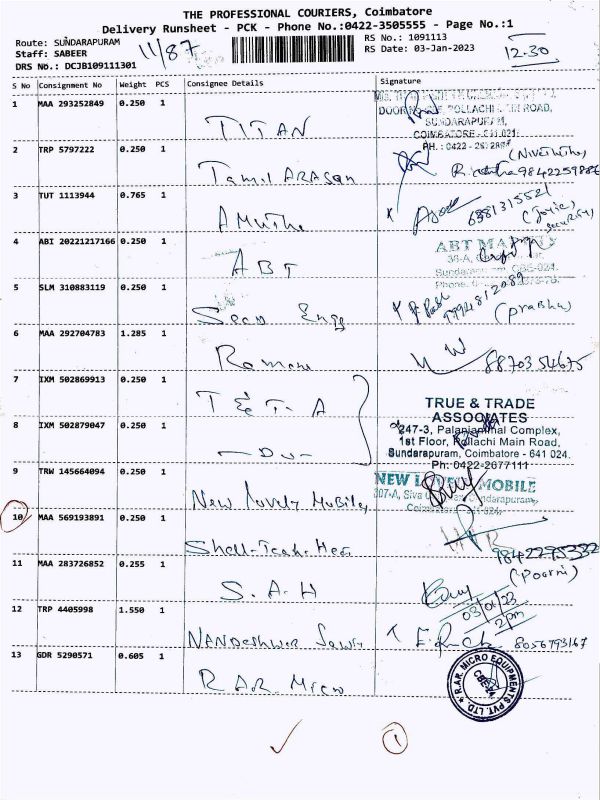 THE PROFESSIONAL COURIERS, Coimbatore
Delivery Runsheet - PCK - Phone No.:0422-3505555 - Page No.:1
Route: SUNDARAPURAM
Staff: SABEER
DRS No.: DCJB109111301
11/87
RS No.: 1091113
RS Date: 03-Jan-2023
12.30
S No Consignment No Weight PCS Consignee Details Signature
1 MAA 293252849 0.250 1 TITAN
POLLACHI MAIN ROAD,
SUNDARAPURAM,
COIMBATORE - 641 021.
2 TRP 5797222 0.250 1 Tamil ARASAN 9842259886
3 TUT 1113944 0.765 1 AMUTHA
4 ABI 20221217166 0.250 1 ABT
ABT
5 SLM 310883119 0.250 1 Seco Engg 9994812089
(Prabhu)
6 MAA 292704783 1.285 1 Ramani 8870354675
7 IXM 502869913 0.250 1 T & T - A
TRUE & TRADE
ASSOCIATES
247-3, Palaniammal Complex,
1st Floor, Pollachi Main Road,
Sundarapuram, Coimbatore - 641 024.
Ph: 0422-2677111
8 IXM 502879047 0.250 1 - Do -
9 TRW 145664094 0.250 1 New Lovely Mobiles
NEW LOVELY MOBILE
10 MAA 569193891 0.250 1
9842295332
(Poorni)
11 MAA 283726852 0.255 1 S. A. H
03/01/23
2pm
12 TRP 4405998 1.550 1 NANDESHWAR 8056793167
13 GDR 5290571 0.605 1 R A R Micro
R.AR. MICRO EQUIPMENTS PVT. LTD
CBE-24
1